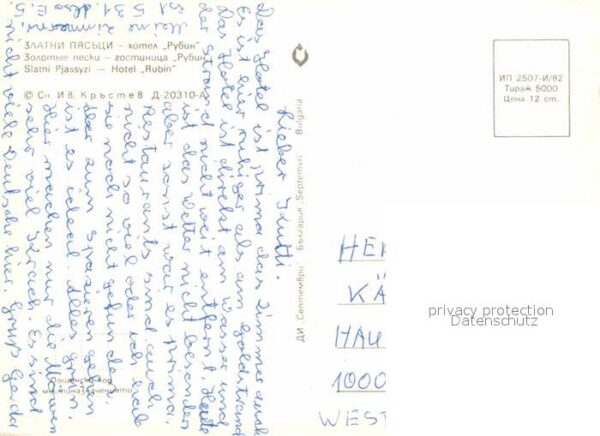 ЗЛАТНИ ПЯСЪЦИ – хотел „Рубин“
Золотые пески – гостиница „Рубин“
Slatni Pjassyzi – Hotel „Rubin“
© Сн. Ив. Кръстев Д-20310-А
Lieber Knutti!
Das Hotel ist prima das Zimmer auch
Es ist hier ruhiger als am Goldstrand
Das Hotel ist direkt am Wasser und
der Strand nicht weit entfernt. Heute
ist das Wetter nicht besonders
aber sonst war es prima.
Restaurants sind auch
nicht so viel oder ich hab
sie noch nicht gefunden.
Aber zum spazieren gehen
ist es ideal. Alles grün.
Hier machen nur die Möwen
sehr viel Krach. Es sind
nicht viele Deutsche hier. Gruß Gerda
Meine Zimmernr.
ist 531 also E.5.
ДИ „Септември“ България „Septemvri“ Bulgaria
Пощенски код
и местоназначението
ИП 2507-И/82
Тираж 5000
Цена 12 ст.
HER
KÄ
HAU
1000
WEST
privacy protection
Datenschutz